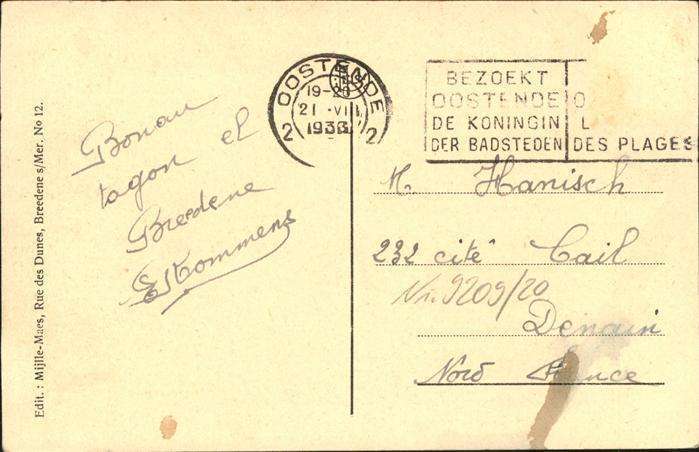 Edit. : Mijlle-Maes, Rue des Dunes, Breedene s/Mer. No 12.
Bonan
tagon el
Bredene
OOSTENDE
19-20
21 VII
1933
2 2
BEZOEKT
OOSTENDE O
DE KONINGIN L
DER BADSTEDEN DES PLAGES
M. Hanisch
232 cité Cail
Nr. 9209/20
Denain
Nord France